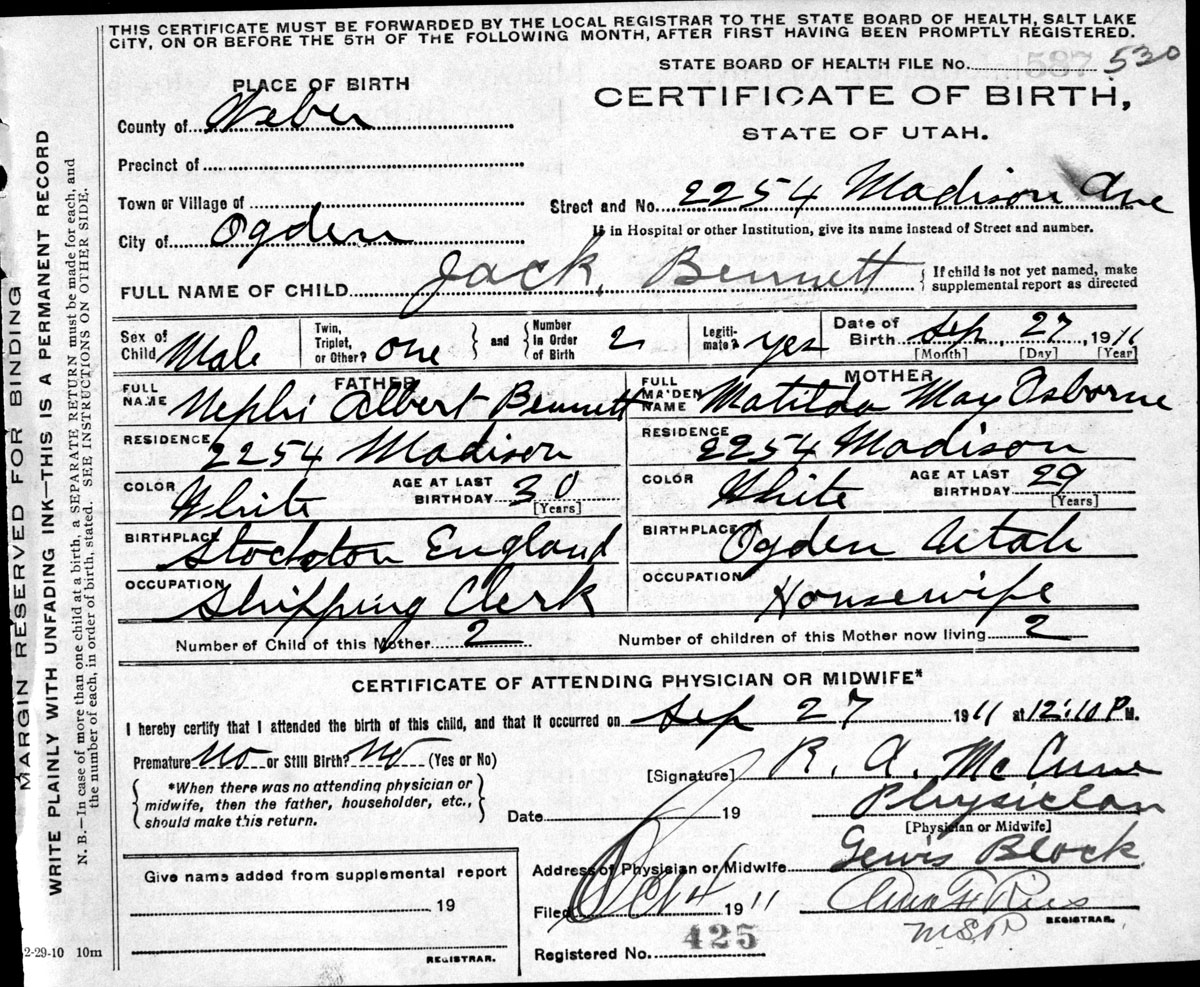 THIS CERTIFICATE MUST BE FORWARDED BY THE LOCAL REGISTRAR TO THE STATE BOARD OF HEALTH, SALT LAKE
CITY, ON OR BEFORE THE 5TH OF THE FOLLOWING MONTH, AFTER FIRST HAVING BEEN PROMPTLY REGISTERED.
MARGIN RESERVED FOR BINDING
WRITE PLAINLY WITH UNFADING INK—THIS IS A PERMANENT RECORD
N. B.—In case of more than one child at a birth, a SEPARATE RETURN must be made for each, and
the number of each, in order of birth, stated. SEE INSTRUCTIONS ON OTHER SIDE.
STATE BOARD OF HEALTH FILE No. 587 530
PLACE OF BIRTH
CERTIFICATE OF BIRTH,
STATE OF UTAH.
County of Weber
Precinct of
Town or Village of
Street and No. 2254 Madison Ave
City of Ogden
If in Hospital or other Institution, give its name instead of Street and number.
FULL NAME OF CHILD Jack Bennett
{ If child is not yet named, make
supplemental report as directed
Sex of Child Male
Twin, Triplet, or Other? one } and { Number in Order of Birth 2
Legiti-mate? yes
Date of Birth Sep, 27, 1911
[Month] [Day] [Year]
FATHER
FULL NAME Nephi Albert Bennett
RESIDENCE 2254 Madison
COLOR White
AGE AT LAST BIRTHDAY 30
[Years]
BIRTHPLACE Stockton England
OCCUPATION Shipping Clerk
MOTHER
FULL MAIDEN NAME Matilda May Osborne
RESIDENCE 2254 Madison
COLOR White
AGE AT LAST BIRTHDAY 29
[Years]
BIRTHPLACE Ogden Utah
OCCUPATION Housewife
Number of Child of this Mother 2 Number of children of this Mother now living 2
CERTIFICATE OF ATTENDING PHYSICIAN OR MIDWIFE*
I hereby certify that I attended the birth of this child, and that it occurred on Sep 27 1911 at 12:10 P M.
Premature No or Still Birth? No (Yes or No)
*When there was no attending physician or
midwife, then the father, householder, etc.,
should make this return.
[Signature] R. A. McCune
Date 19 Physician
[Physician or Midwife]
Address of Physician or Midwife Lewis Block
Filed Oct 4 1911
REGISTRAR.
Registered No. 425
Give name added from supplemental report
19
REGISTRAR.
2-29-10 10m